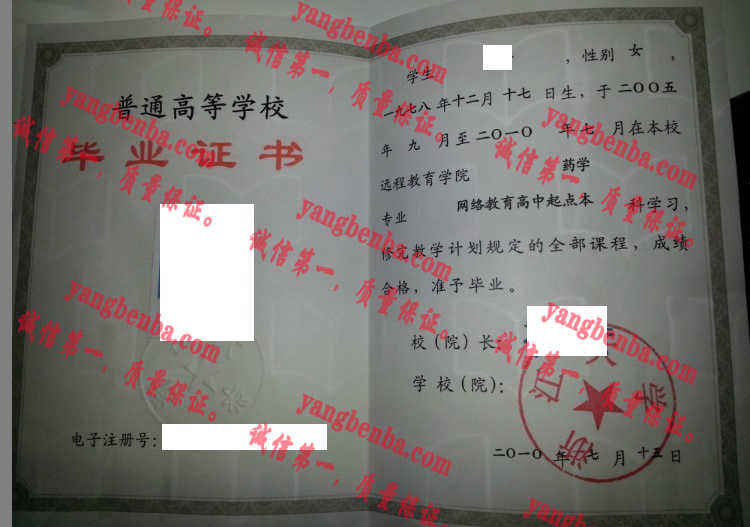 普通高等学校
毕业证书
电子注册号:
学生 ,性别 女 ,
一九七八 年十二月 十七 日生,于 二〇〇五
年 九 月至 二〇一〇 年 七 月在本校
远程教育学院 药学
专业 网络教育高中起点本 科学习,
修完教学计划规定的全部课程,成绩
合格,准予毕业。
校(院)长:
学校(院):
浙江大学
二〇一〇 年 七 月 十五 日
yangbenba.com
诚信第一,质量保证。
yangbenba.com
诚信第一,质量保证。
yangbenba.com
诚信第一,质量保证。
yangbenba.com
诚信第一,质量保证。
yangbenba.com
诚信第一,质量保证。
yangbenba.com
诚信第一,质量保证。
yangbenba.com
诚信第一,质量保证。